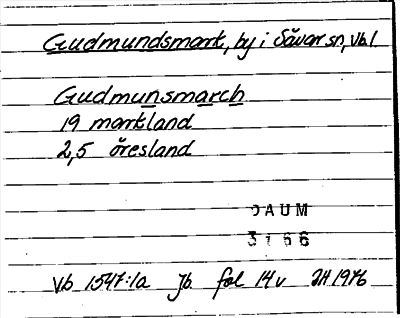 Gudmundsmark, by i Sävar sn, Vb l.
Gudmunsmarch
19 markland
2,5 öresland
DAUM
3166
Vb 1547:1a Jb fol 14v JH 1976